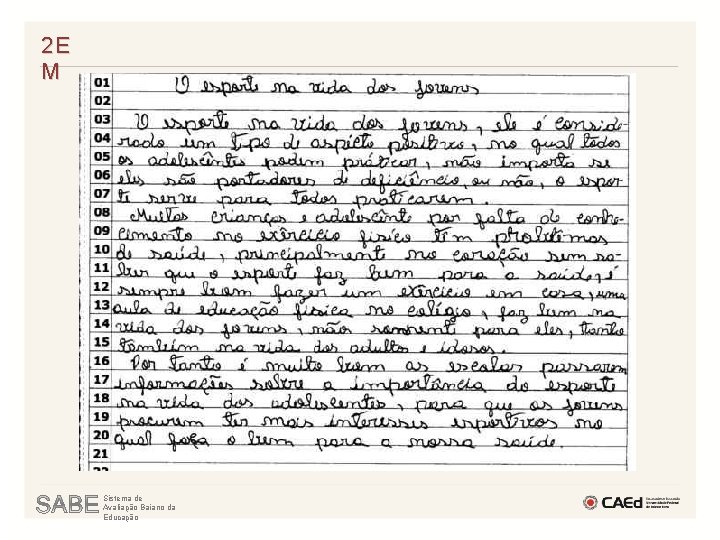 2 E
M
01 O esporte na vida dos jovens
02
03 O esporte na vida dos jovens, ele é conside-
04 rado um tipo de aspécto positivo, no qual todos
05 os adolescentes podem práticar, não importa se
06 eles são portadores de deficiência, ou não, o espor-
07 te serve para todos praticarem.
08 Muitas crianças e adolescente por falta de conhe-
09 cimento no exércicio fisico têm problemas
10 de saúde, principalmente no coração sem sa-
11 ber que o esporte faz bem para a saúde, é
12 sempre bom fazer um exércicio em casa, uma
13 aula de educação fisica no colégio, faz bem na
14 vida dos jovens, não somente para eles,
15 também na vida dos adultos e idosos.
16 Por tanto é muito bom as escolas passarem
17 informações sobre a importância do esporte
18 na vida dos adolescentes, para que os jovens
19 procurem ter mais interesses esportivos no
20 qual faça o bem para a nossa saúde.
21
SABE
Sistema de
Avaliação Baiano da
Educação
CAEd